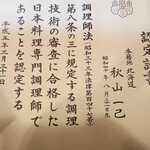 認定証書
本籍地 北海道
秋山一己
昭和四十年 八月二十一日生
調理師法(昭和三十三年法律第百四十七号)
第八条の三に規定する調理
技術の審査に合格した
日本料理専門調理師で
あることを認定する
平成五年三月三十一日